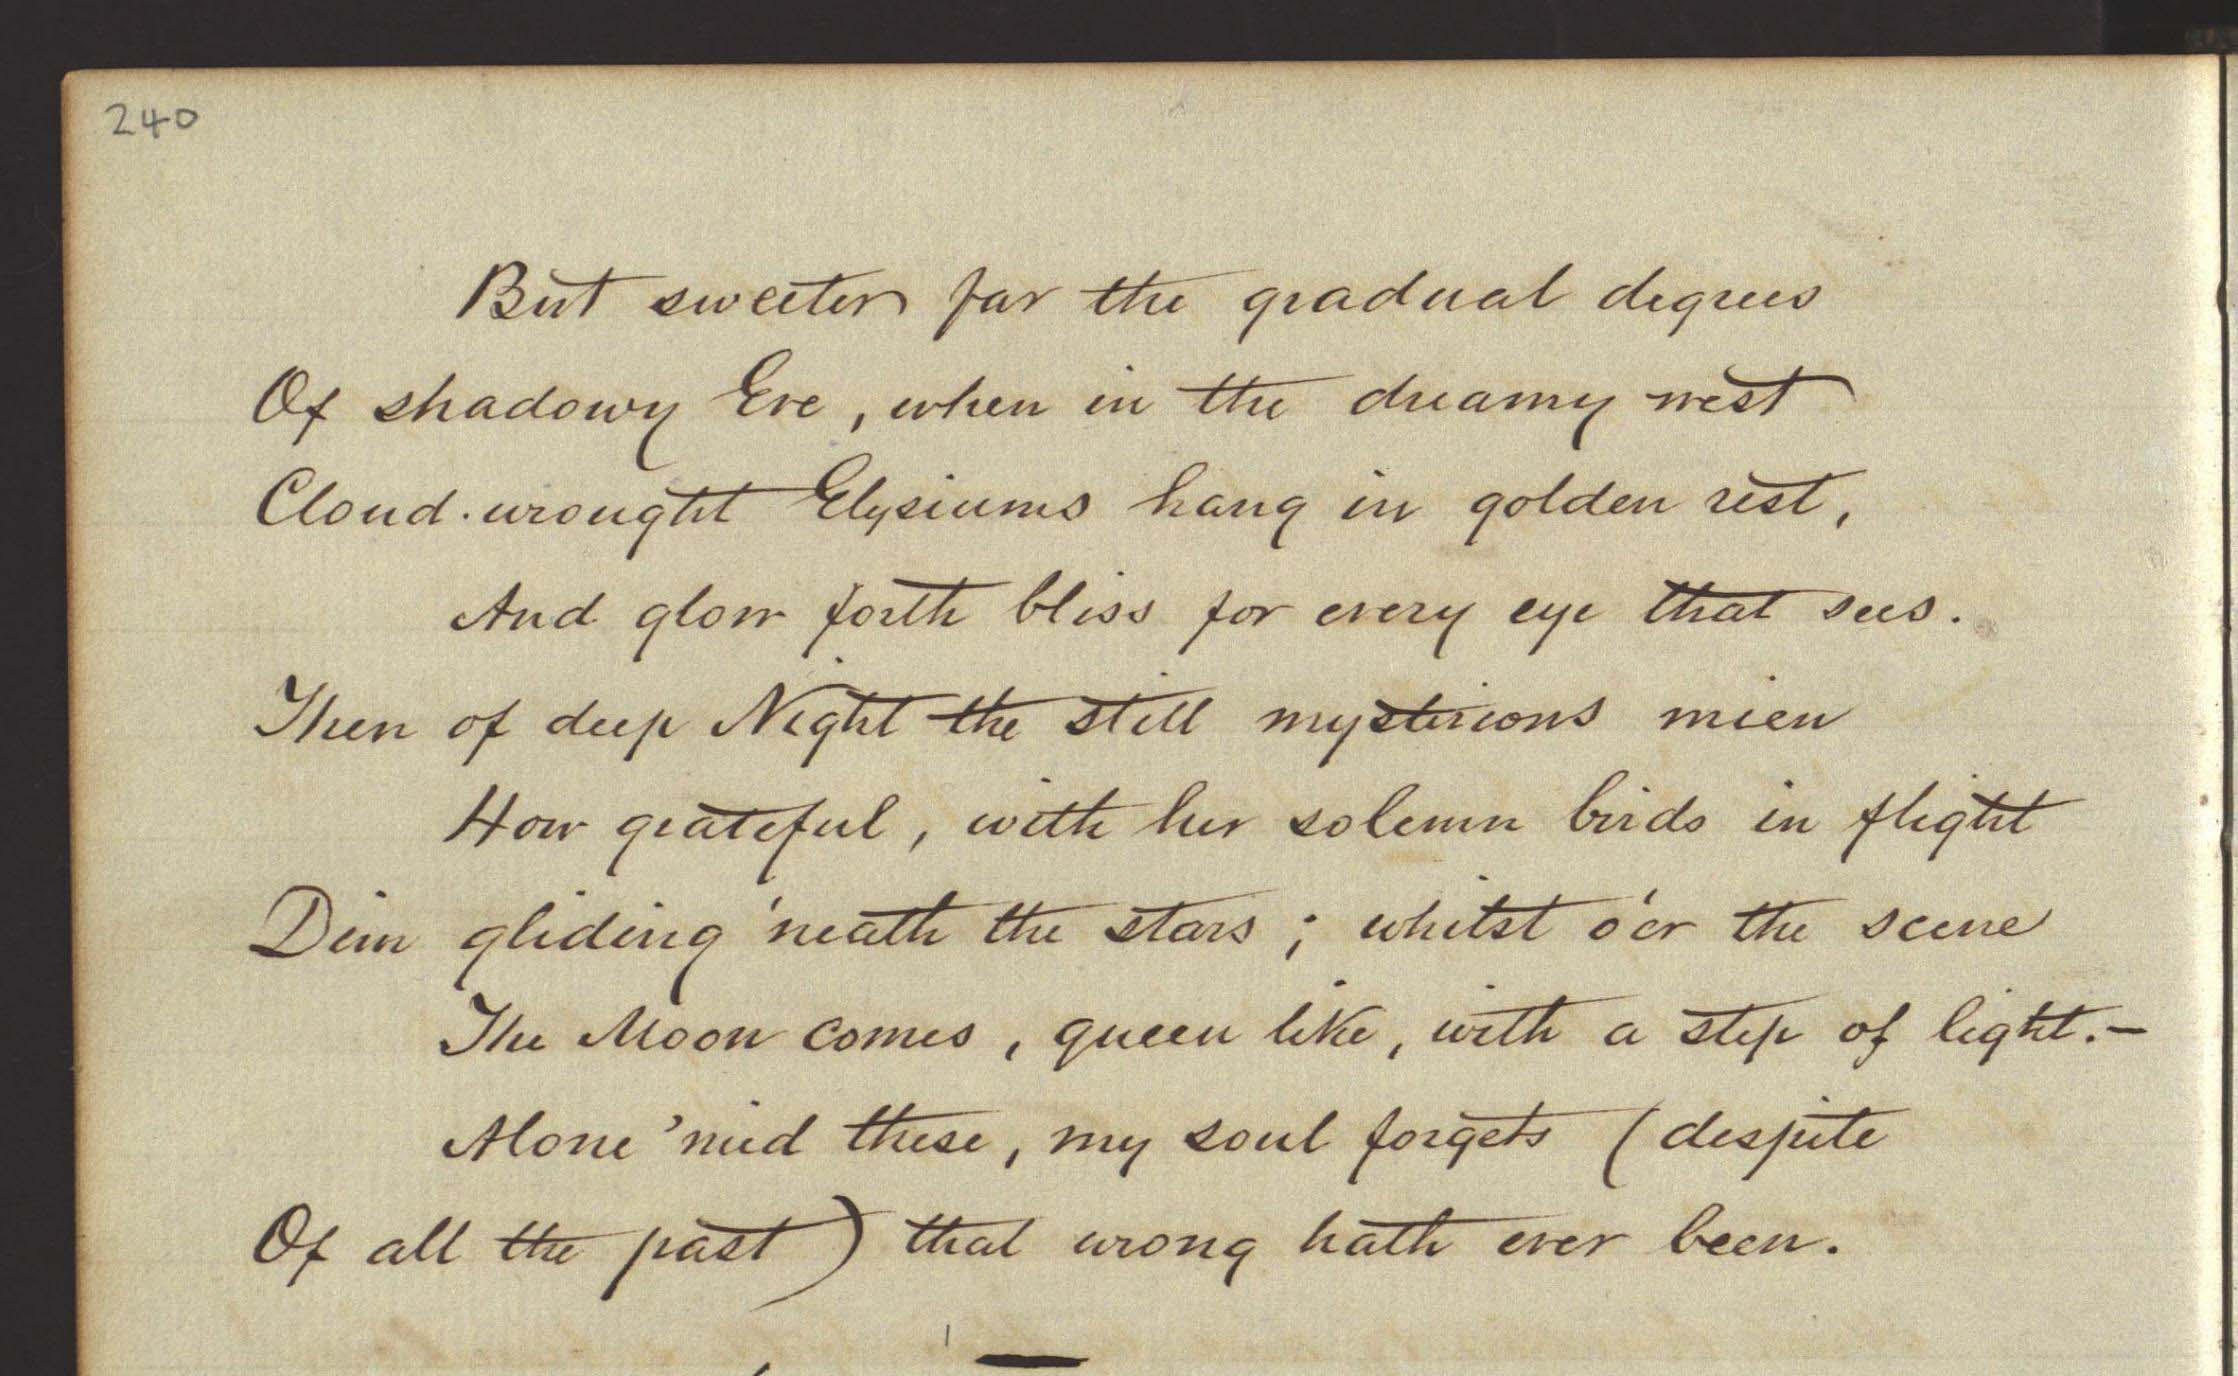 240
But sweeter far the gradual degrees
Of shadowy Eve, when in the dreamy west
Cloud-wrought Elysiums hang in golden rest,
And glow forth bliss for every eye that sees.
Then of deep Night the still mysterious mien
How grateful, with her solemn birds in flight
Dim gliding 'neath the stars; whilst o'er the scene
The Moon comes, queen like, with a step of light.—
Alone 'mid these, my soul forgets (despite
Of all the past) that wrong hath ever been.